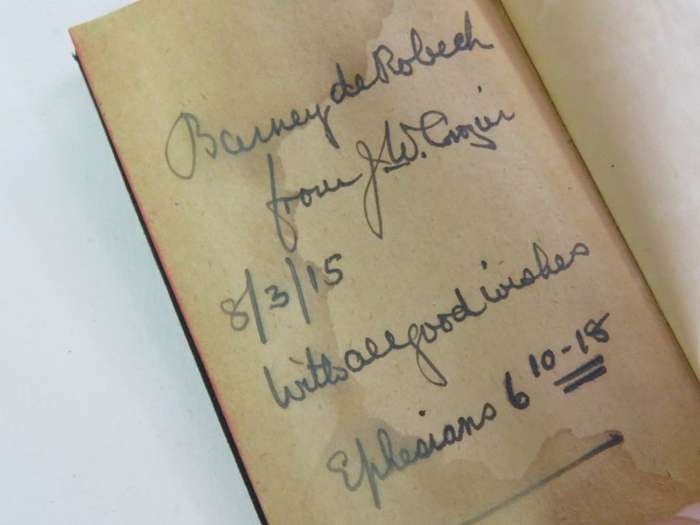 Barney de Robeck
from J.W. Crozier
8/3/15
With all good wishes
Ephesians 6 10-18